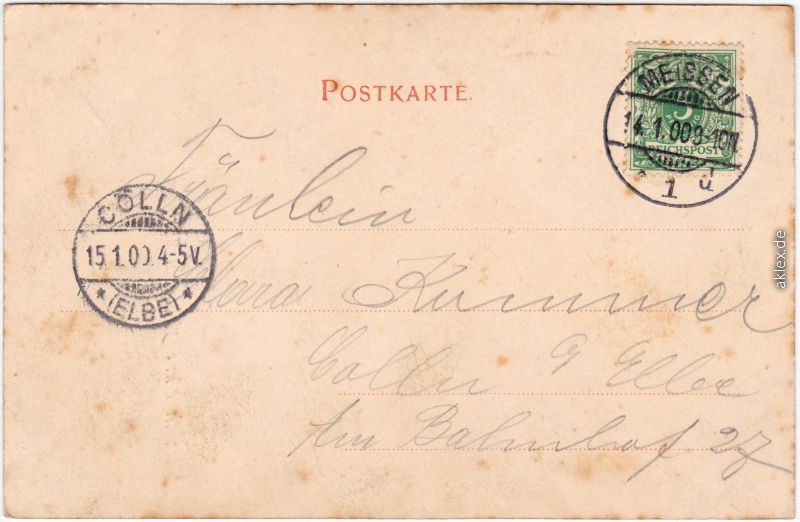 POSTKARTE.
MEISSEN
14.1.00 9-10N.
* 1 d
5
REICHSPOST
CÖLLN
15.1.00.4-5V.
* (ELBE) *
Fräulein
Clara Kummer
Cölln a/ Elbe
Am Bahnhof 27
aklex.de